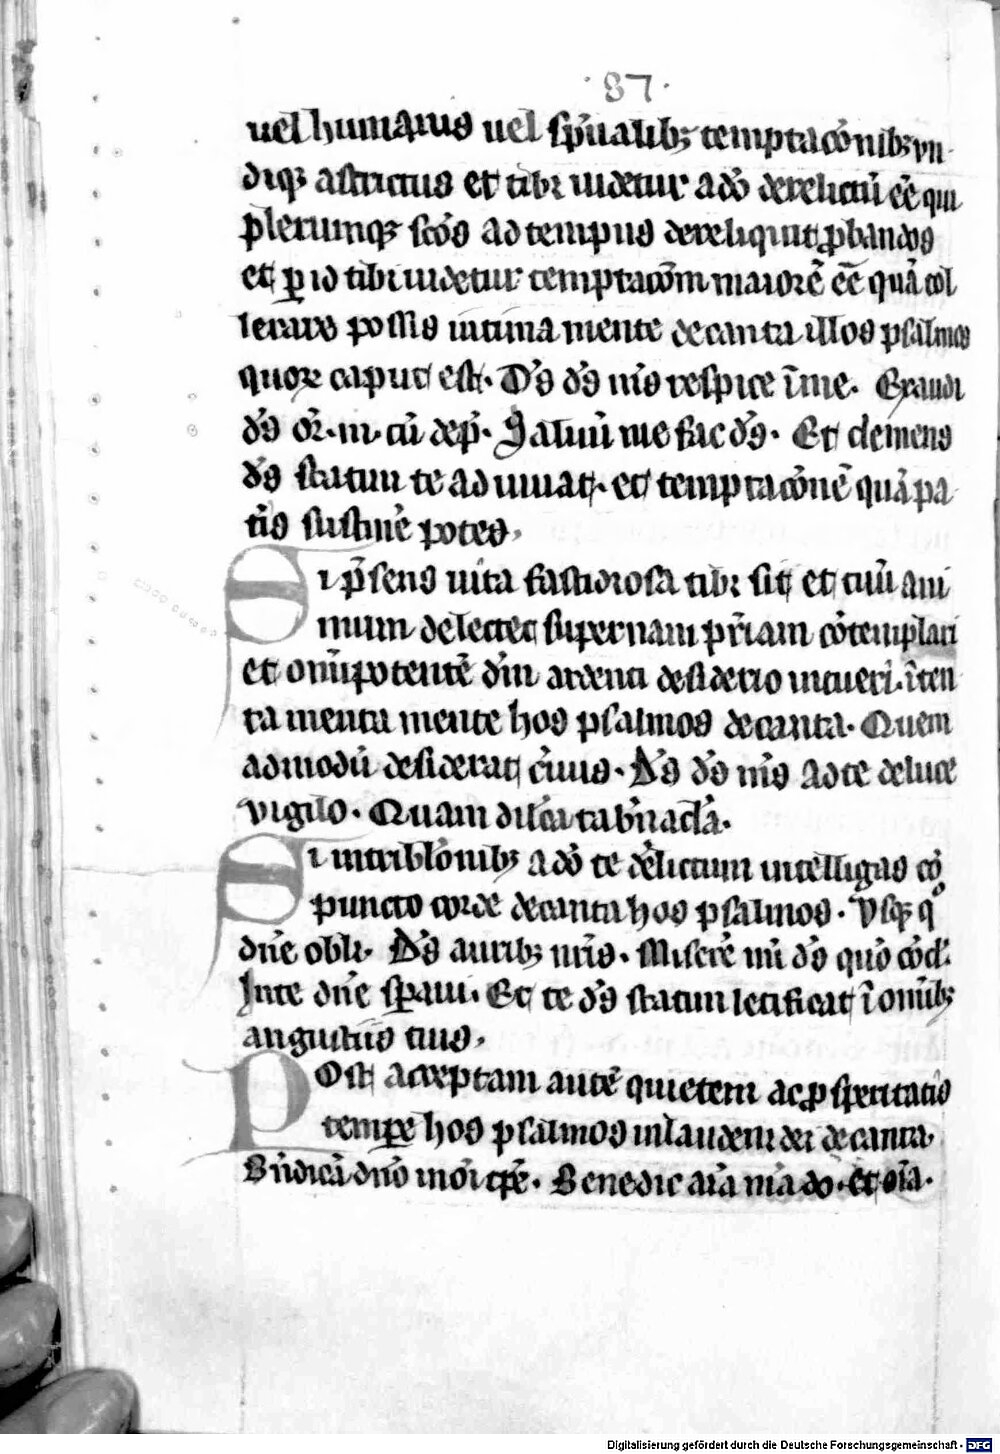 ·87·
uel humanis uel sp̄ualibꝫ temptac̄onibꝫ vn
diqꝫ astrictus et tibi uidetur a dō derelictū ēē qui
plerumqꝫ sc̄os ad tempus dereliquit ꝓbandos
et ꝑ id tibi uidetur temptac̄om maiorē ēē quā tol
lerare possis intima mente decanta illos psalmos
quoꝝ caput est. D̄s d̄s m̄s respice ī me. Exaudi
d̄s or̄. m. cū dep̄. Saluū me fac d̄s. Et clemens
d̄s statim te adiuuat. et temptac̄onē quā pa
tis sustinē̄ potes.
Si p̄sens uita fastidiosa tibi sit et tuū ani
mum delectet supernam p̄riam c̄otemplari
et om̄ipotentē dm̄ ardenti desiderio intueri. īten
ta menta mente hos psalmos decanta. Quem
admodū desiderat c̄uus. D̄s d̄s m̄s ad te de luce
vigilo. Quam dil̄ca tab̄nac̄la.
Si in tribl̄onibꝫ a dō te d̄elictum intelligas cō
puncto corde decanta hos psalmos. Vsqꝫ qͦ
dn̄e obli. D̄s auribꝫ nr̄is. Miserē m̄ d̄s qūo c̄ocl̄.
In te dn̄e sp̄aui. Et te d̄s statim letificat ī om̄ibꝫ
angustiis tuis.
Post acceptam autē quietem ac ꝓsperitatis
tempꝛe hos psalmos in laudem dei decanta.
Bn̄dicā dn̄o in oī tp̄e. Benedic aīa m̄a dō. et oīa.
Digitalisierung gefördert durch die Deutsche Forschungsgemeinschaft - DFG